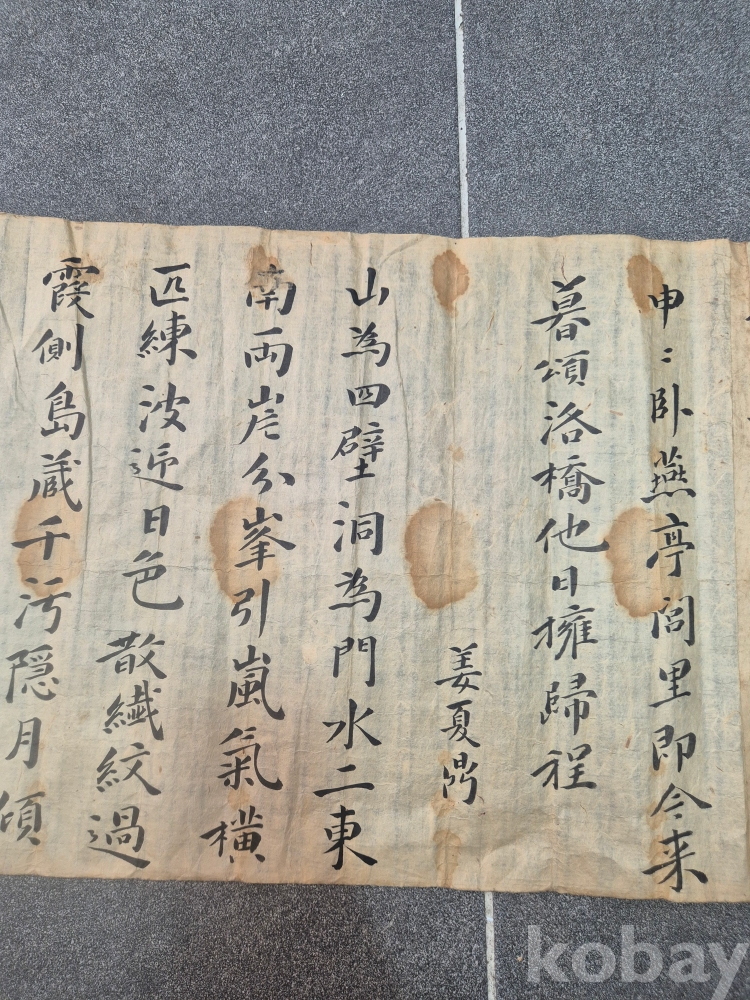 申〻卧燕亭閭里即今来
暮頌洛橋他日擁歸程
姜夏鼎
山為四壁洞為門水二東
南兩岸分峯引嵐氣橫
匹練波近日色散纖紋過
霞側島蔵千污隠月傾
kobay